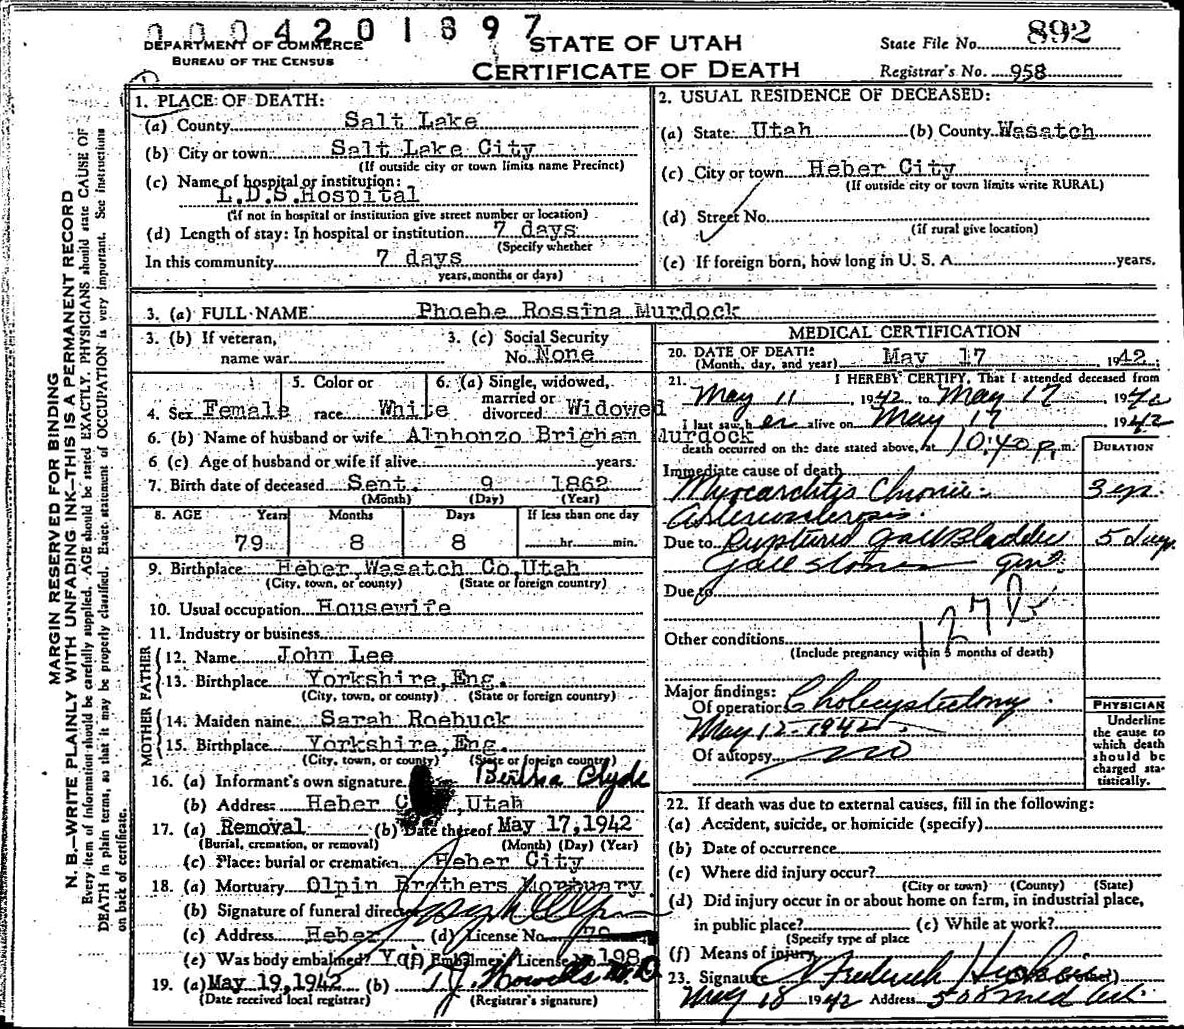 0004201897
DEPARTMENT OF COMMERCE
BUREAU OF THE CENSUS
STATE OF UTAH
CERTIFICATE OF DEATH
State File No. 892
Registrar's No. 958
MARGIN RESERVED FOR BINDING
N. B.—WRITE PLAINLY WITH UNFADING INK—THIS IS A PERMANENT RECORD
Every item of information should be carefully supplied. AGE should be stated EXACTLY. PHYSICIANS should state CAUSE OF
DEATH in plain terms, so that it may be properly classified. Exact statement of OCCUPATION is very important. See instructions
on back of certificate.
1. PLACE OF DEATH:
(a) County Salt Lake
(b) City or town Salt Lake City
(If outside city or town limits name Precinct)
(c) Name of hospital or institution:
L.D.S.Hospital
(if not in hospital or institution give street number or location)
(d) Length of stay: In hospital or institution 7 days
(Specify whether
In this community 7 days
years, months or days)
2. USUAL RESIDENCE OF DECEASED:
(a) State Utah (b) County Wasatch
(c) City or town Heber City
(If outside city or town limits write RURAL)
(d) Street No.
(if rural give location)
(e) If foreign born, how long in U. S. A. years.
3. (a) FULL NAME Phoebe Rossina Murdock
3. (b) If veteran,
name war
3. (c) Social Security
No. None
4. Sex Female
5. Color or
race White
6. (a) Single, widowed,
married or
divorced Widowed
6. (b) Name of husband or wife Alphonzo Brigham Murdock
6 (c) Age of husband or wife if alive years.
7. Birth date of deceased Sept. 9 1862
(Month) (Day) (Year)
8. AGE Years Months Days If less than one day
79 8 8 hr. min.
9. Birthplace Heber, Wasatch Co, Utah
(City, town, or county) (State or foreign country)
10. Usual occupation Housewife
11. Industry or business
FATHER
12. Name John Lee
13. Birthplace Yorkshire, Eng.
(City, town, or county) (State or foreign country)
MOTHER
14. Maiden name Sarah Roebuck
15. Birthplace Yorkshire, Eng.
(City, town, or county) (State or foreign country)
16. (a) Informant's own signature Bertha Clyde
(b) Address Heber City, Utah
17. (a) Removal (b) Date thereof May 17, 1942
(Burial, cremation, or removal) (Month) (Day) (Year)
(c) Place: burial or cremation Heber City
18. (a) Mortuary Olpin Brothers Mortuary
(b) Signature of funeral director
(c) Address Heber (d) License No. 79
(e) Was body embalmed? Yes (f) Embalmer License No. 198
19. (a) May 19, 1942 (b) T.J. Howells M.D
(Date received local registrar) (Registrar's signature)
MEDICAL CERTIFICATION
20. DATE OF DEATH: May 17 1942
(Month, day, and year)
21. I HEREBY CERTIFY, That I attended deceased from
May 11, 1942 to May 17 1942
I last saw her alive on May 17 1942
death occurred on the date stated above, at 10:40 p. m. DURATION
Immediate cause of death
Myocarditis Chronic 3 yr.
Arteriosclerosis.
Due to Ruptured Gall Bladder 5 days
Gall stones
Due to
127 b
Other conditions
(Include pregnancy within 3 months of death)
Major findings:
Of operation Cholecystectomy
May 12-1942
Of autopsy no
PHYSICIAN
Underline
the cause to
which death
should be
charged sta-
tistically.
22. If death was due to external causes, fill in the following:
(a) Accident, suicide, or homicide (specify)
(b) Date of occurrence
(c) Where did injury occur?
(City or town) (County) (State)
(d) Did injury occur in or about home on farm, in industrial place,
in public place? (e) While at work?
(Specify type of place
(f) Means of injury
23. Signature Frederick
May 18 1942 Address 500 Med Art.